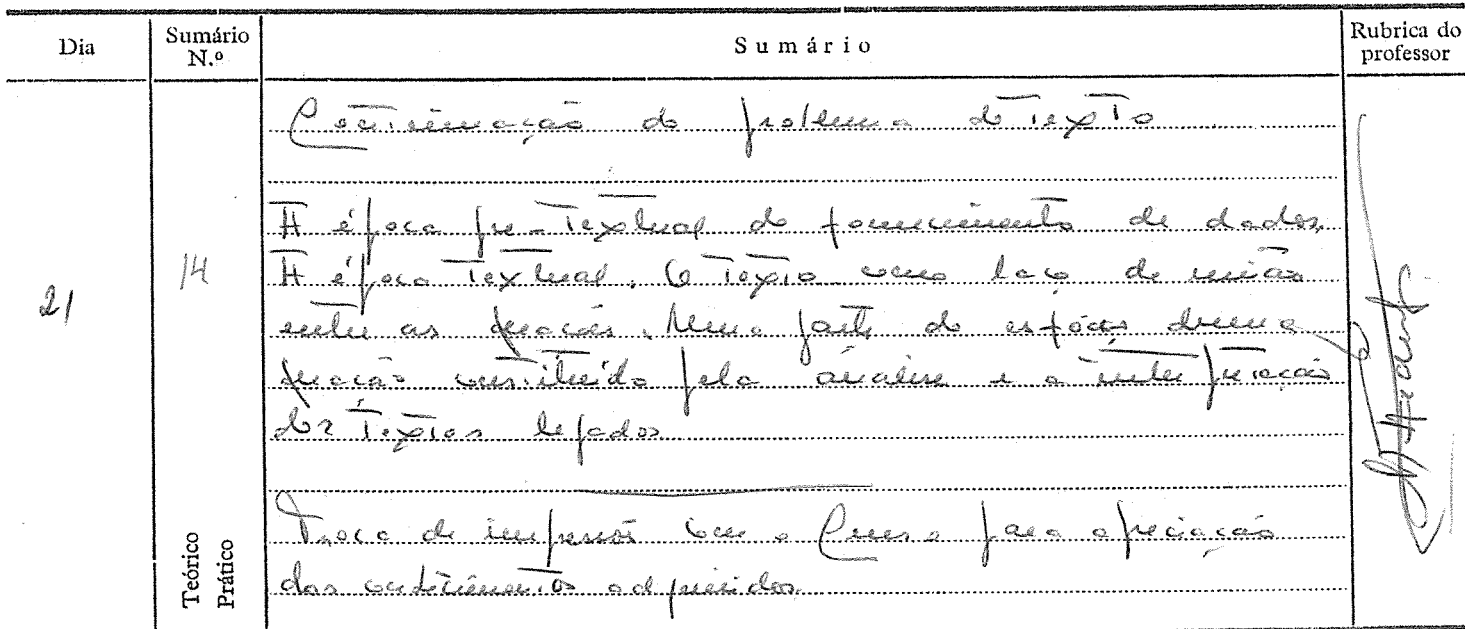 Dia
Sumário N.º
Sumário
Rubrica do professor
21
14
Continuação do problema do Texto
A época pre-Textual do fornecimento de dados.
A época Textual. O Texto como laço de união
entre as gerações. Uma parte do espólio duma
geração constituído pela análise e a interpretação
dos Textos legados
Teórico
Prático
Troca de impressões com o Curso para apreciação
dos conhecimentos adquiridos.